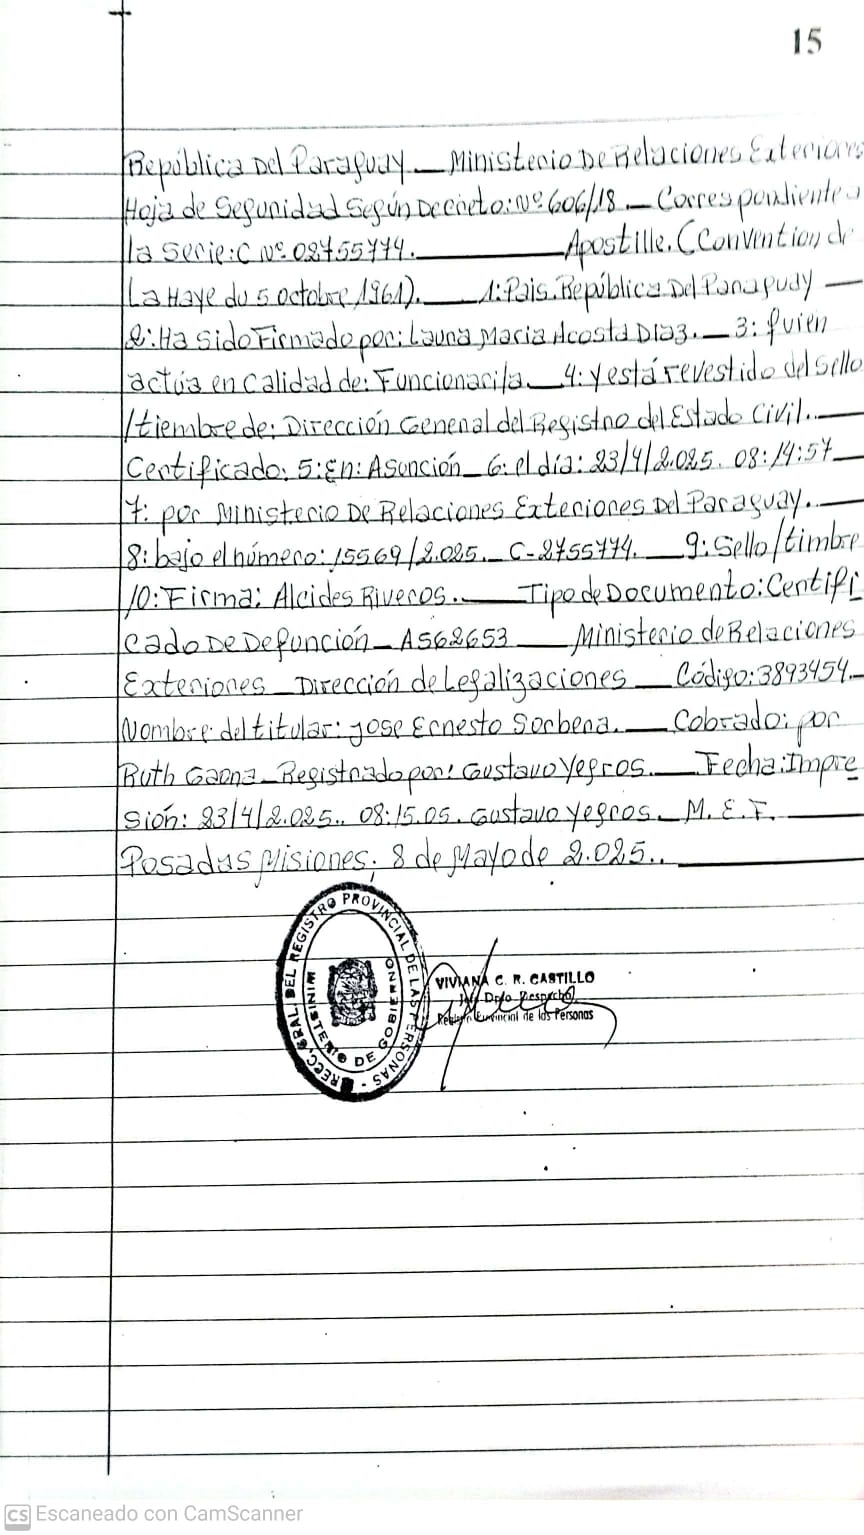 15
República Del Paraguay — Ministerio De Relaciones Exteriores
Hoja de Seguridad Según Decreto: Nº 606/18 — Correspondiente a
la Serie: C Nº 02755774. — Apostille. (Convention de
La Haye du 5 octobre 1961). — 1: Pais. República Del Paraguay —
2: Ha sido Firmado por: Laura Maria Acosta Diaz. — 3: quien
actúa en calidad de: Funcionari/a — 4: y está revestido del sello
/tiembre de: Dirección General del Registro del Estado Civil. —
Certificado: 5: En: Asunción — 6: el día: 23/4/2.025. 08:14:57 —
7: por Ministerio De Relaciones Exteriores Del Paraguay. —
8: bajo el número: 15569/2.025. — C-2755774. — 9: Sello/timbre
10: Firma: Alcides Riveros. — Tipo de Documento: Certifi
cado De Defunción — A562653 — Ministerio de Relaciones
Exteriores — Dirección de Legalizaciones — Código: 3893454. —
Nombre del titular: Jose Ernesto Sorbera. — Cobrado: por
Ruth Gaona — Registrado por: Gustavo Yegros. — Fecha: Impre
sión: 23/4/2.025.. 08:15.05. Gustavo Yegros — M. E. F. —
Posadas Misiones, 8 de Mayo de 2.025.. —
GRAL. DEL REGISTRO PROVINCIAL DE LAS PERSONAS -
MINISTERIO DE GOBIERNO
VIVIANA C. R. CASTILLO
Dpto Despacho
Provincial de las Personas
CS Escaneado con CamScanner